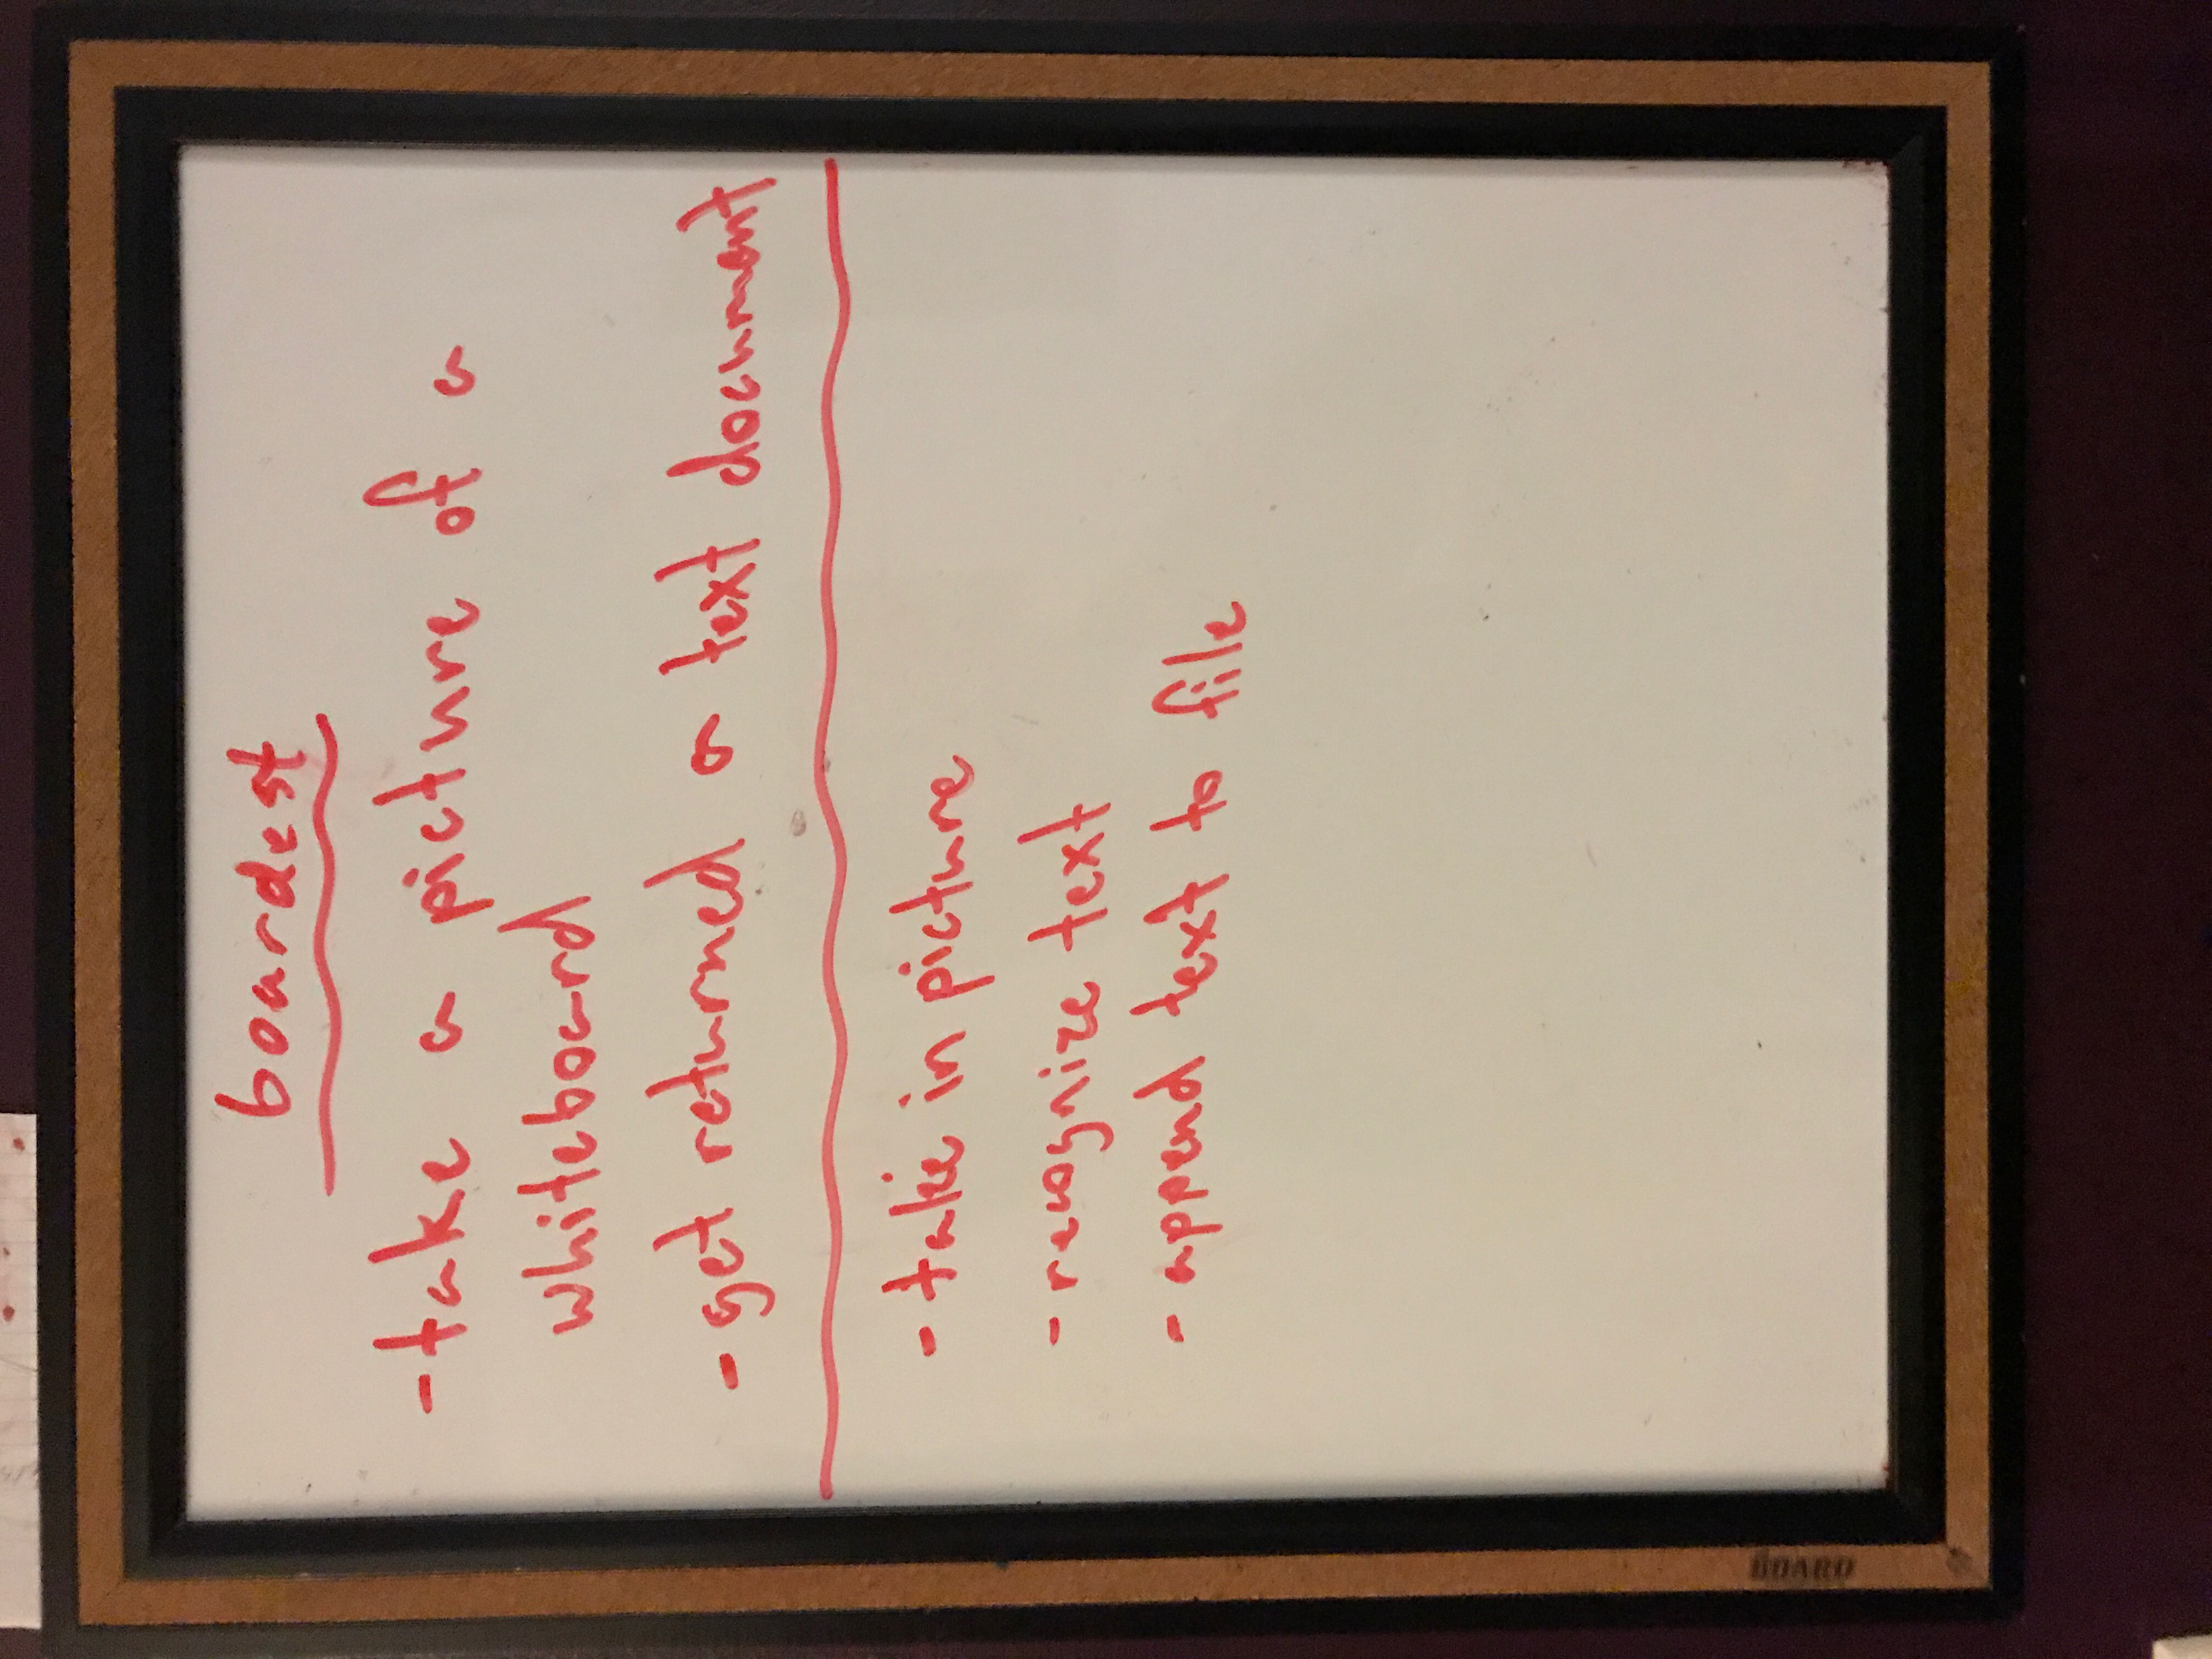 boardest
- take a picture of a
whiteboard
- get returned a text document
- take in picture
- recognize text
- append text to file